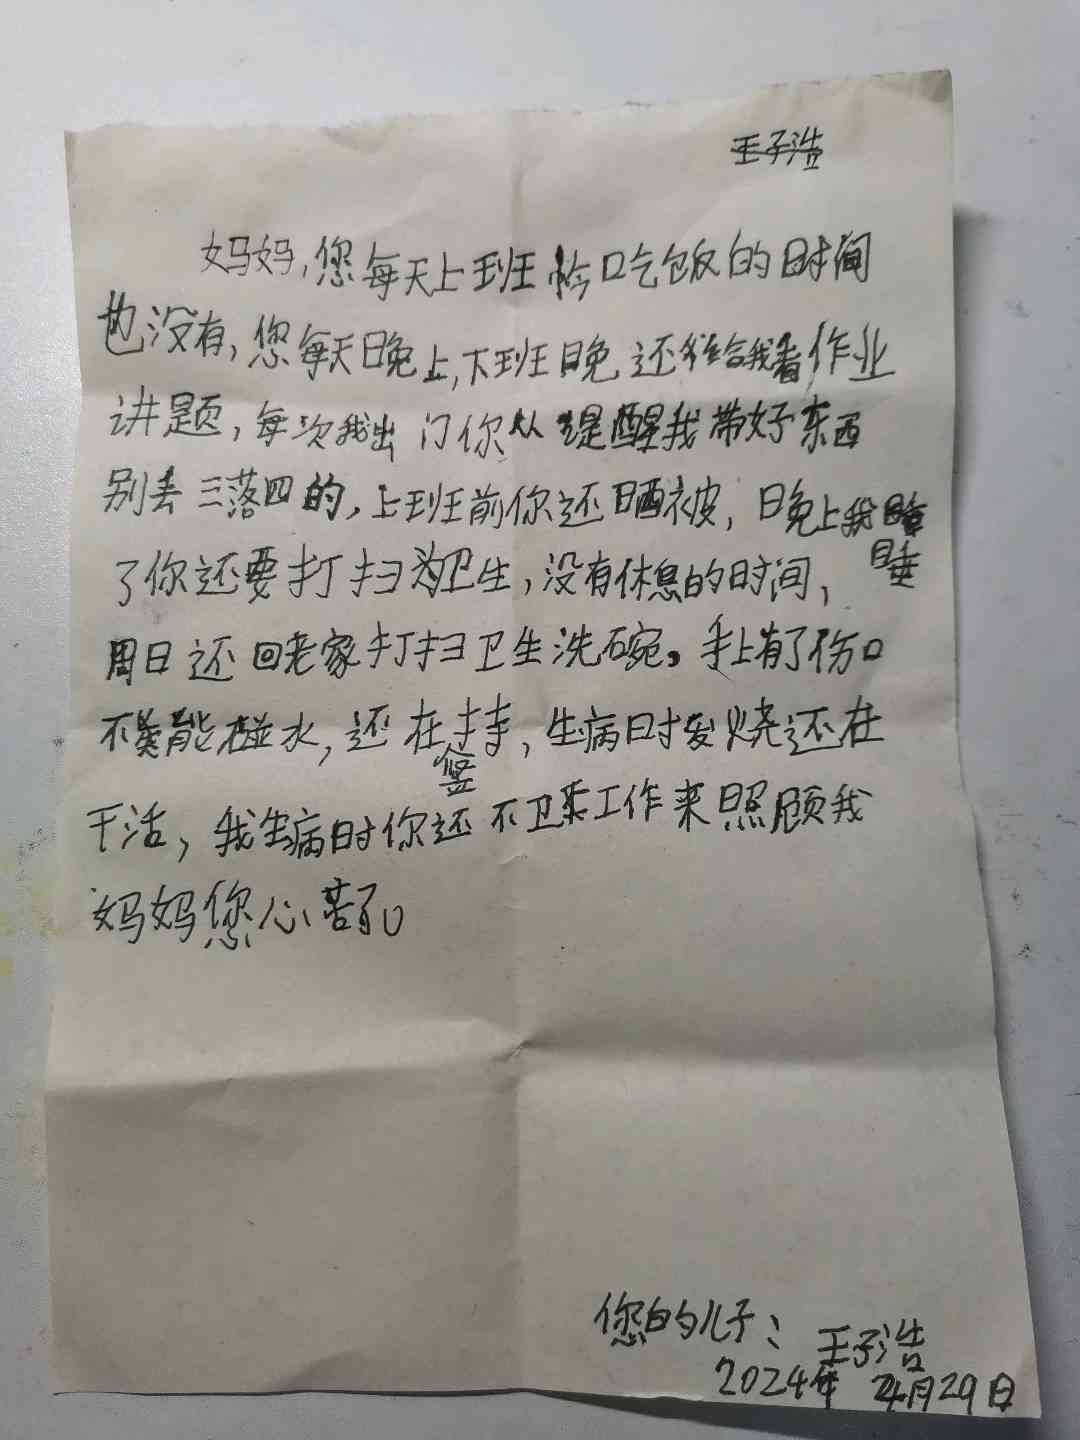 王子浩
妈妈，您每天上班忙口吃饭的时间
也没有，您每天晚上，下班晚还给我看作业
讲题，每次我出门你从提醒我带好东西
别丢三落四的，上班前你还晒衣皮，晚上我睡
了你还要打扫为卫生，没有休息的时间，
周日还回老家打扫卫生洗碗。手上有了伤口
不能碰水，还在坚持，生病时发烧还在
干活，我生病时你还不工作来照顾我
妈妈您心苦了。
您的儿子：王子浩
2024年4月29日